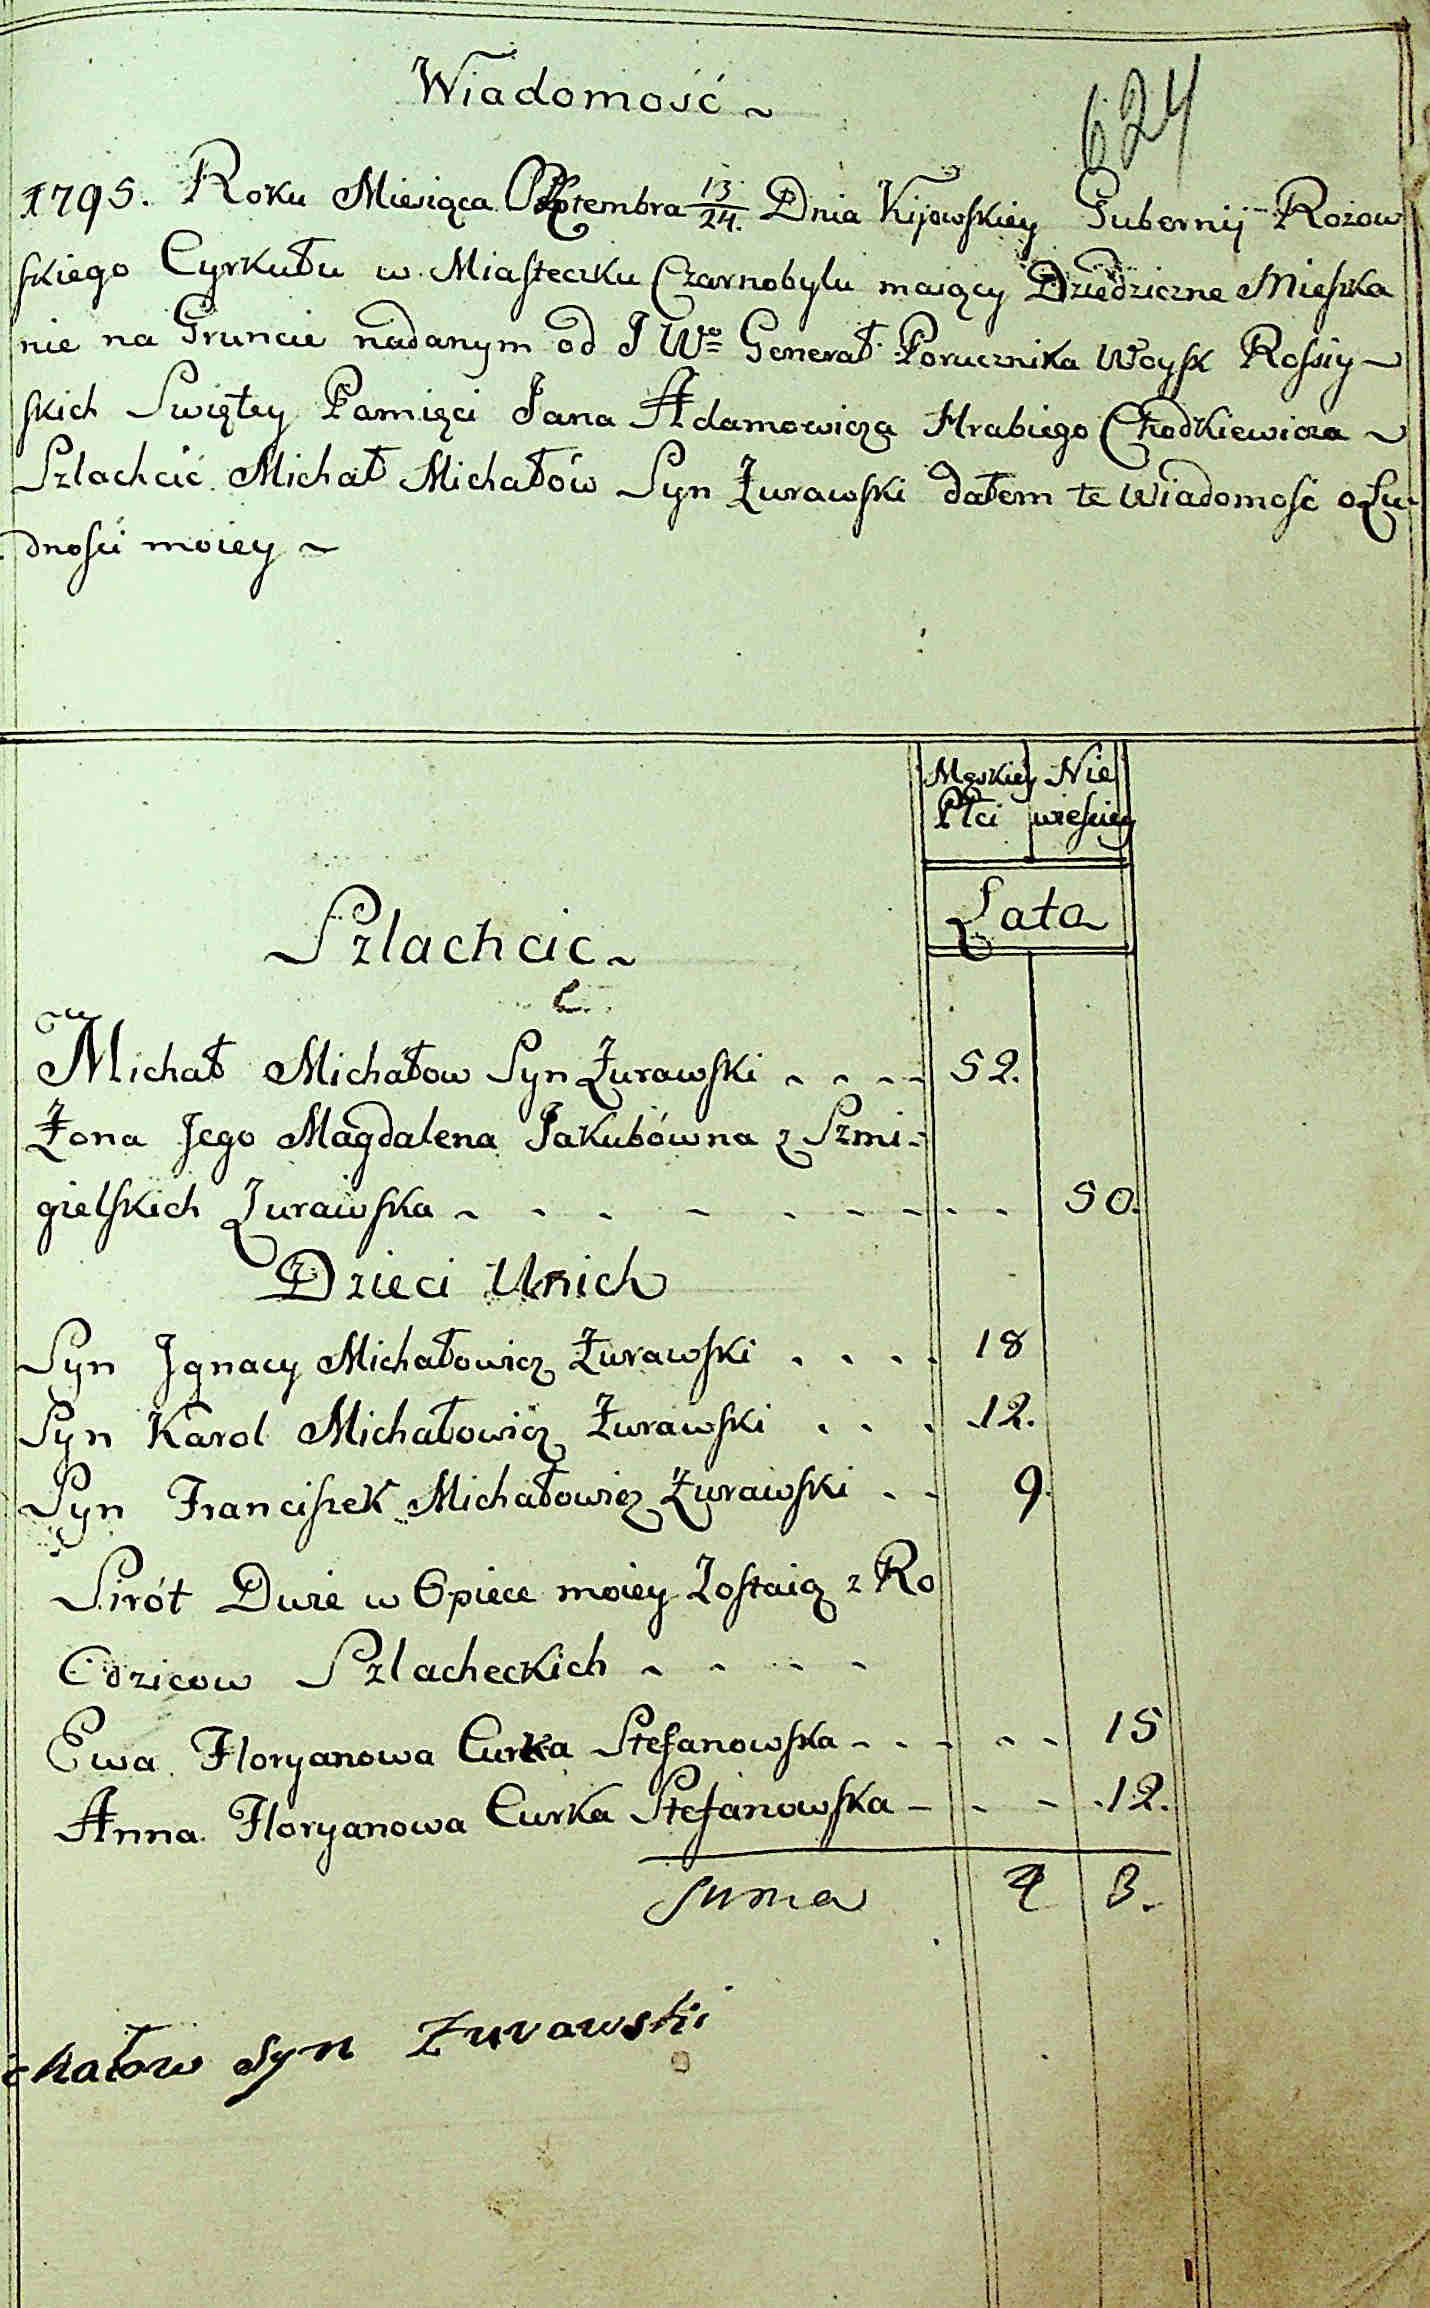 Wiadomość ~
624
1795. Roku Miesiąca 13/24. Dnia Kijowskiey Gubernij Rożow
skiego Cyrkułu w Miasteczku Czarnobylu maiący Dziedziczne Mieszka
nie na Gruncie nadanym od J Wo Generał Porucznika Woysk Rossiy ~
skich Swiętey Pamięci Jana Adamowicza Hrabiego Chodkiewicza ~
Szlachcic Michał Michałów Syn Żurawski dałem te Wiadomość o Lu-
dności moiey ~
Męskiey Nie
Płci wieściey
Lata
Szlachcic ~
Michał Michałow Syn Żurawski - - - - 52.
Żona Jego Magdalena Jakubówna z Szmi-
gielskich Żurawska - - - - - - - - - 50.
Dzieci Unich
Syn Jgnacy Michałowicz Żurawski . . . . 18
Syn Karol Michałowicz Żurawski . . . 12.
Syn Franciszek Michałowicz Żurawski . . 9.
Sirót Dwie w Opiece moiey Zostaią z Ro
dziców Szlacheckich - - - -
Ewa Floryanowa Curka Stefanowska - - - - - 15
Anna Floryanowa Curka Stefanowska - - - 12.
Suma 4 3.
chałow Syn Zurawski